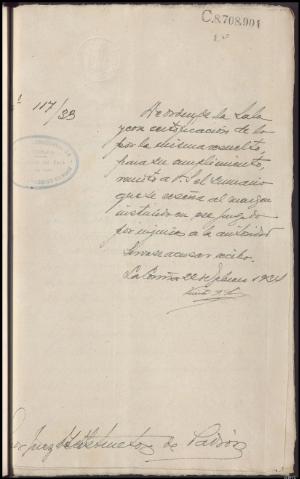 C.8.708.901
117/33
De orden de la Sala
y con certificación de lo
por la misma resuelto,
para su cumplimiento,
remito a V.S. el sumario
que se reseña al margen
instruido en ese Juzgado
por injurias a la autoridad
Sírvase acusar recibo.
La Coruña 22 de febrero 1934
Juez de Instrucción de Padrón